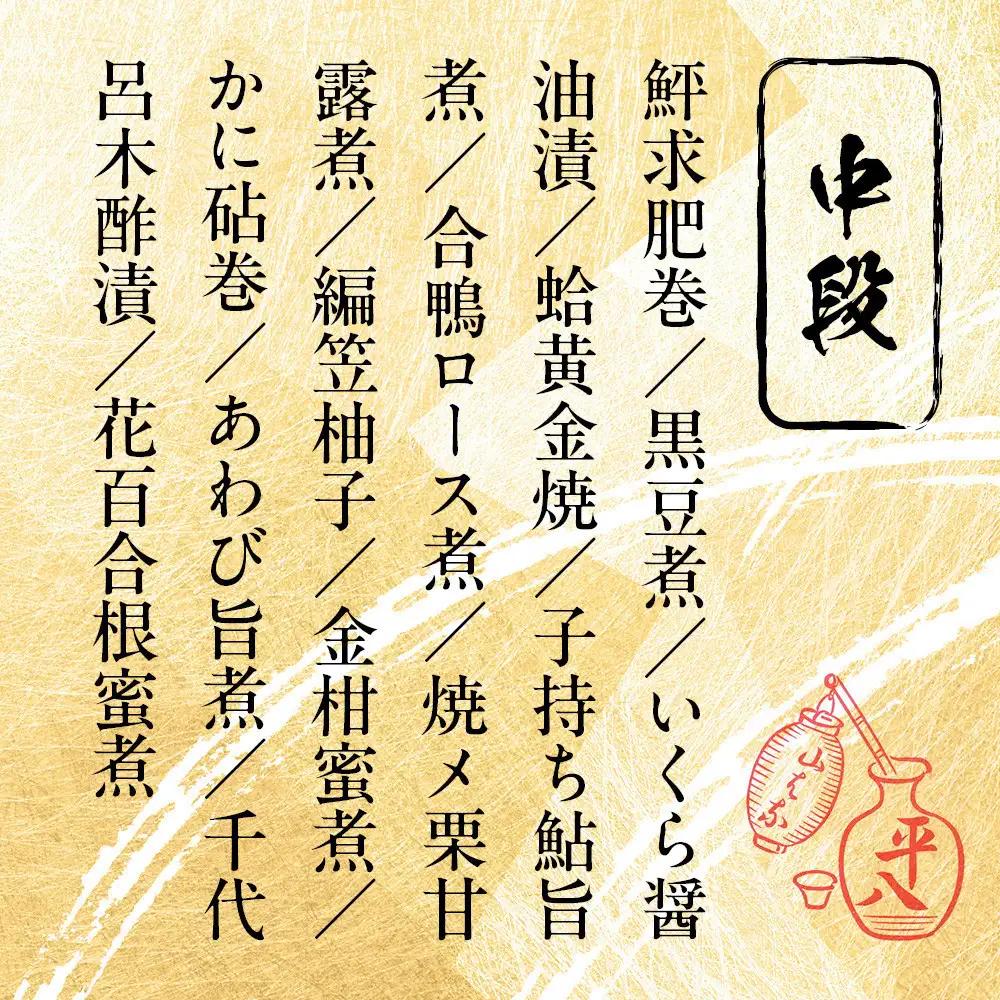 中段
鮃求肥巻／黒豆煮／いくら醤
油漬／蛤黄金焼／子持ち鮎旨
煮／合鴨ロース煮／焼〆栗甘
露煮／編笠柚子／金柑蜜煮／
かに砧巻／あわび旨煮／千代
呂木酢漬／花百合根蜜煮
平八